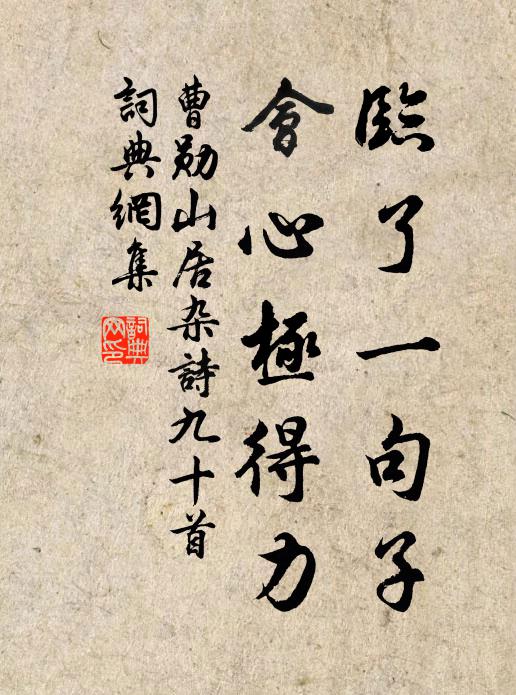 臨了一句子
會心極得力
曹勛山居杂詩九十首
詞典網集
詞典網印